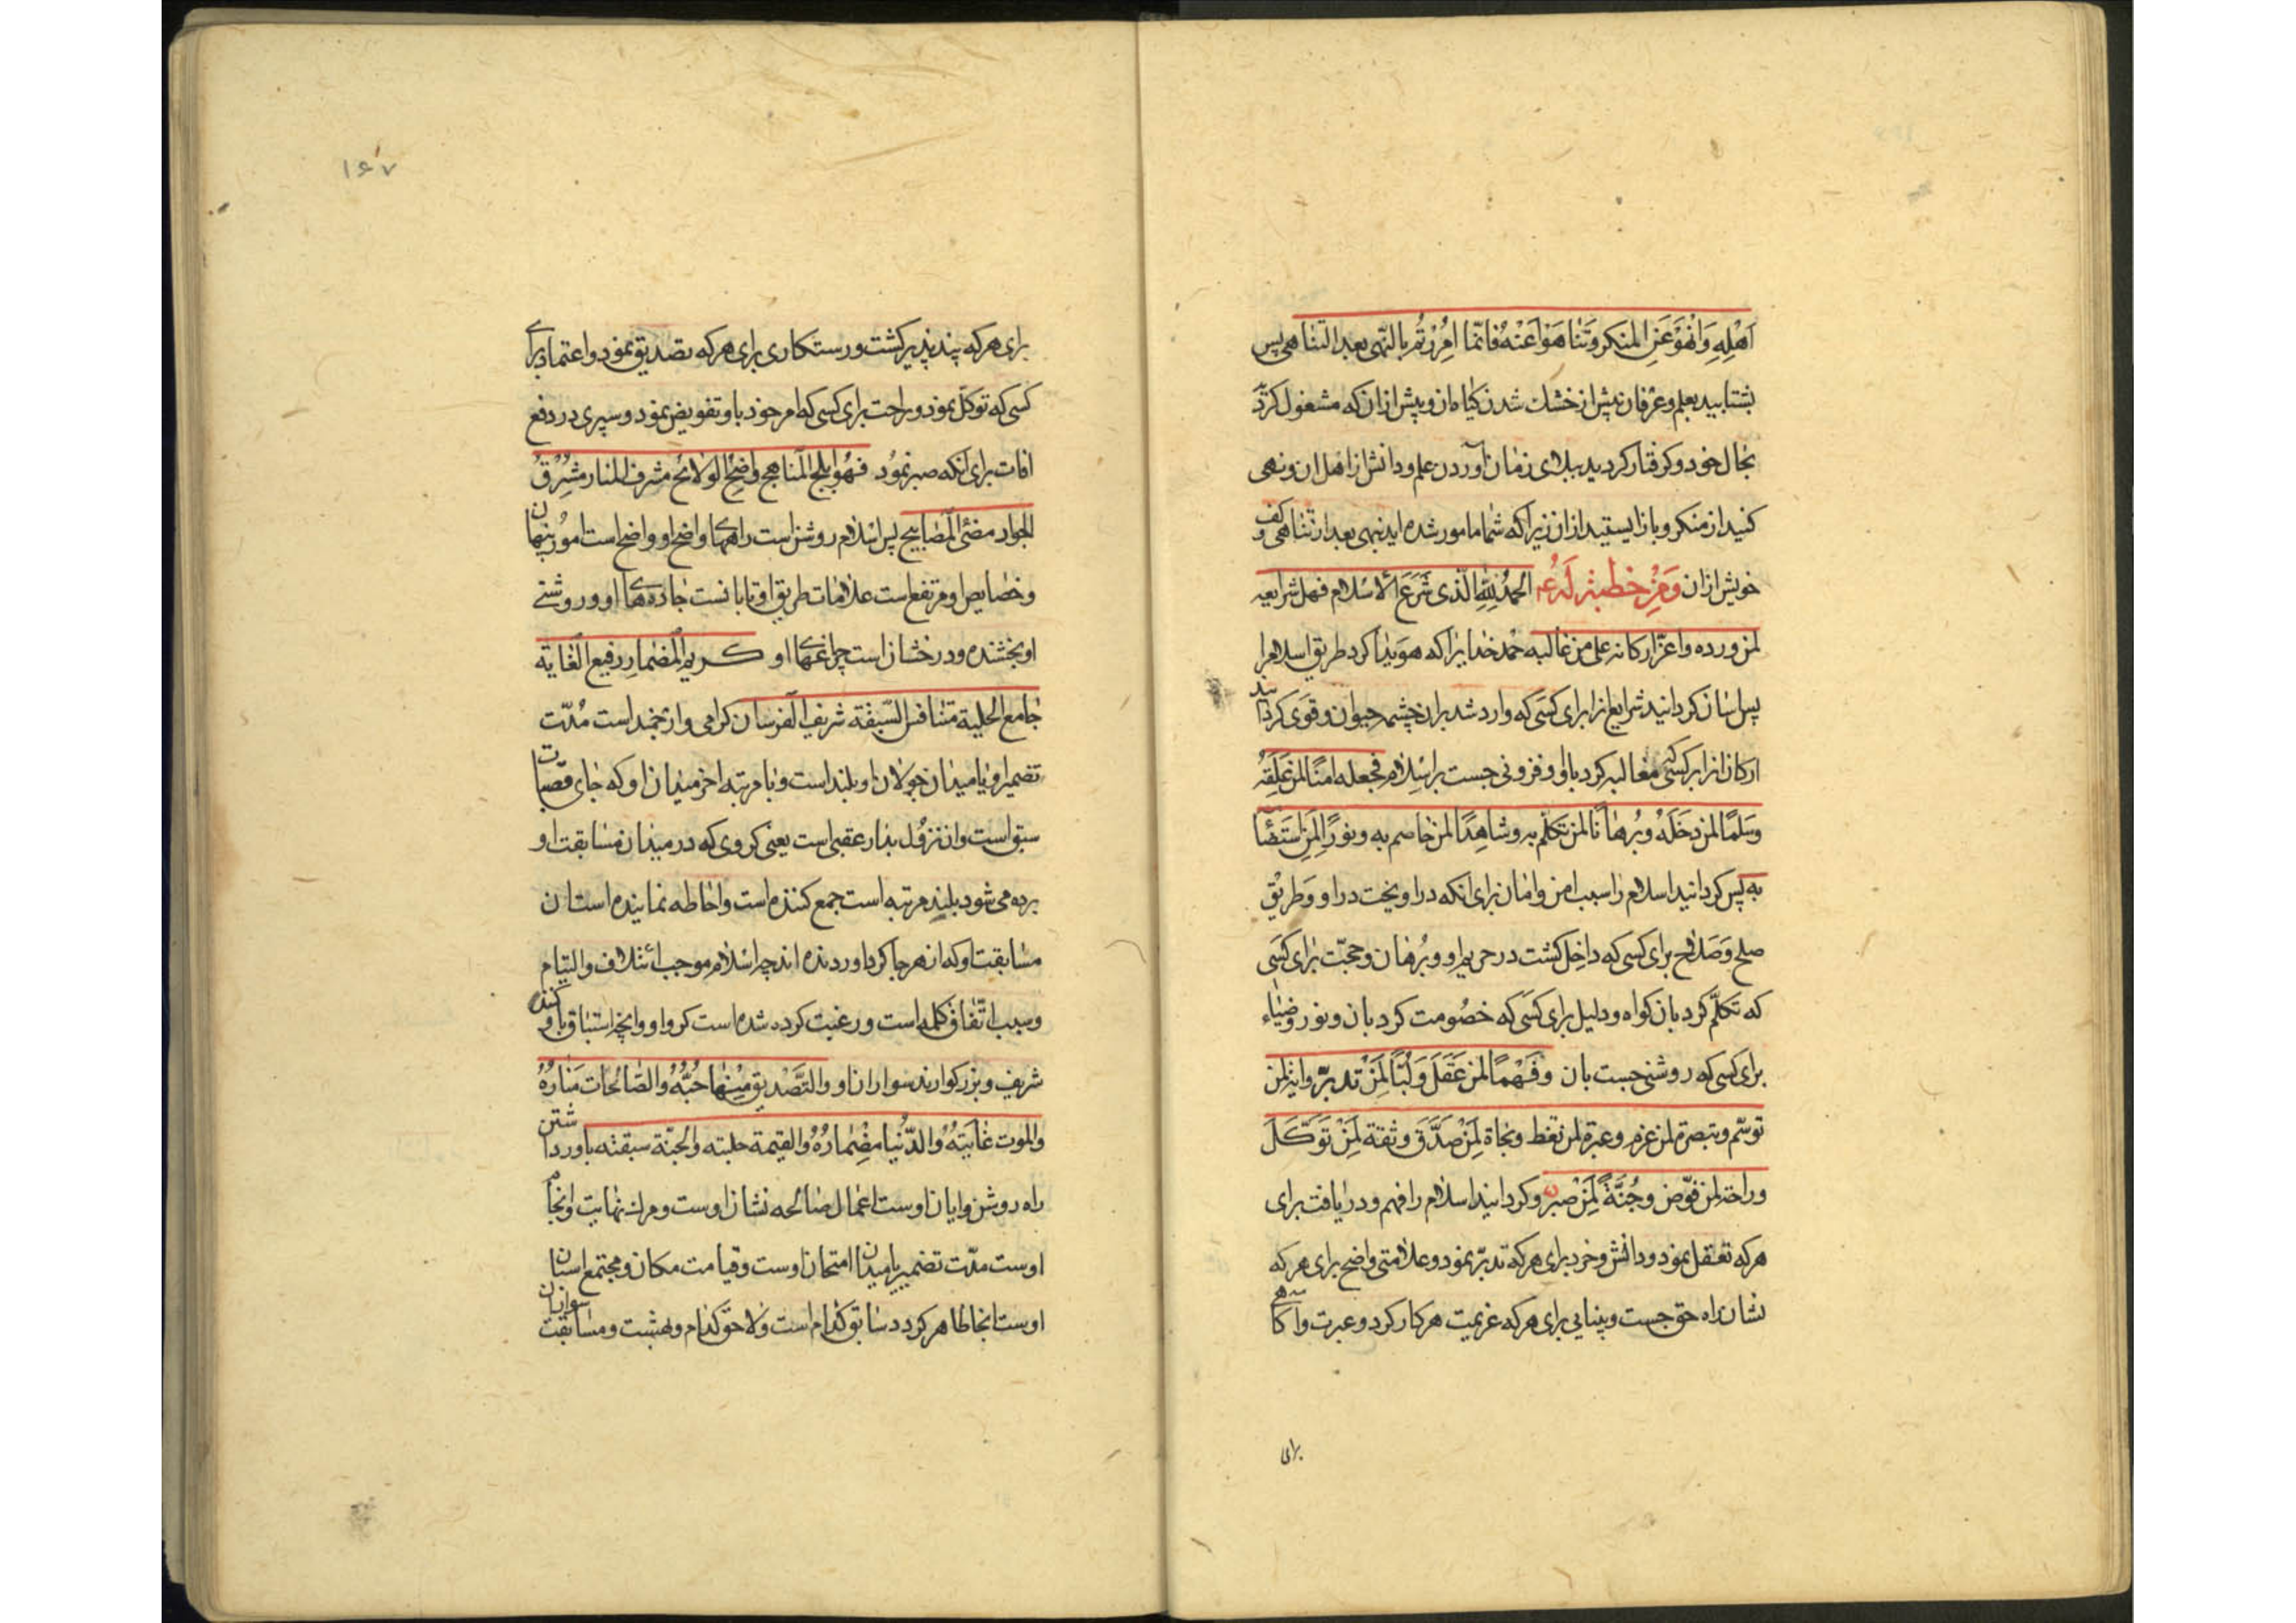 اَهْلِهِ وَانْهَوْا عَنِ المنکر وَتَنٰاهَوْا عَنْهُ فَانّما اُمِرْتُم بِالنّهی بعد التناهی پس
بشتابید بعلم و عرفان پیش از خشك شدن کیاه ان و پیش از ان که مشغول کردید
بحال خود و کرفتار کردید ببلای زمان از آوردن علم و دانش از اهل ان و نهی
کنید از منکر و باز ایستید از ان زیرا که شما مامور شده اید بنهی بعد از تناهی و کف
خویش از ان وَمِنْ خطبته لَهُ ع الحمدُ للهِ الّذی شَرَعَ الاسْلام فسهل شرایعه
لمن ورده واعزّ ارکانه علی من غالبه حمد خدایرا که هویدا کرد طریق اسلام را
پس اسان کردانید شرایع انرا برای کسی که وارد شد بران چشمه حیوان و قوی کردانید
ارکان انرا بر کسی که مغالبه کرد باو و فزونی جست بر اسلام فجعله امنًا لمن عَلِقَهُ
وسَلمًا لمن دخَلَهُ وبُرهٰانًا لمن تکلّم به وشاهِدًا لمن خاصم به ونورًا لِمَنِ اسْتَضٰٓا
به پس کردانید اسلام را سبب امن و امان برای انکه در اویخت در او و طریق
صلح و صلاح برای کسی که داخل کشت در حریم او و بُرهان و حجّت برای کسی
که تکلّم کرد بان و کواه و دلیل برای کسی که خصومت کرد بان و نور و ضیاء
برای کسی که روشنی جست بان وفَهْمًا لمن عَقَلَ وَلُبًّا لِمَنْ تدبّر وایة لمن
توسّم وتبصرة لمن عزم وعبرة لمن تعظ ونجاة لِمَنْ صدَّقَ وثقة لِمَنْ تَوَکَّلَ
وراحة لمن فوّض وجُنَّةً لِمَنْ صبر و کردانید اسلام را فهم و دریافت برای
هرکه تعقل نمود و دانش و خرد برای هرکه تدبّر نمود و علامتی واضح برای هرکه
نشان راه حق جست و بینایی برای هرکه عزیمت هر کار کرد و عبرت و آکاهی
برای
۱۶۷
برای هرکه پند پذیر کشت و رستکاری برای هرکه تصدیق نمود و اعتماد برای
کسی که توکّل نمود و راحت برای کسی که امر خود باو تفویض نمود و سپری در دفع
افات برای انکه صبر نمود فهُوَ ابلج المناهج واضح الولائج مشرف المنار مشرق
الجواد مضئی المصابیح پس اسلام روشن است راههای واضح او و واضح است امور پنهان
و خصایص او مرتفع است علامات طریق او تابانست جاده های او و روشنی
او بخشنده و درخشان است چراغهای او کریم المضمارِ رفیع الغایة
جامع الحلبة متنافس السّبقة شریف الفرسان کرامی و ارجمند است مُدّت
تضمیر او یا میدان جولان او بلند است و با مرتبه اخر میدان او که جای قصبات
سبق است و ان نزول بدار عقبی است یعنی کروی که در میدان مسابقت او
برده می شود بلند مرتبه است جمع کننده است و احاطه نماینده اسبان
مسابقت او که از هر جا کرد اورده اند چه اسلام موجب ائتلاف و التیام
و سبب اتّفاق کلمه است و رغبت کرده شده است کرو او و انچه استباق باو کنند
شریف و بزرکوارند سواران او والتَّصدیق مِنْهٰاجُهُ والصّالحات مَنٰارُهُ
والموت غٰایَتُهُ والدُّنیا مِضْمٰارُهُ والقیمة حلبته والجنّة سبقته باور داشتن
راه روشن و ایان اوست اعمال صالحه نشان اوست و مرك نهایت و انجام
اوست مدّت تضمیر یا میدان امتحان اوست و قیامت مکان و مجتمع اسبان
اوست انجا ظاهر کردد سابق کدام است و لاحق کدام و بهشت و مسابقت سواران